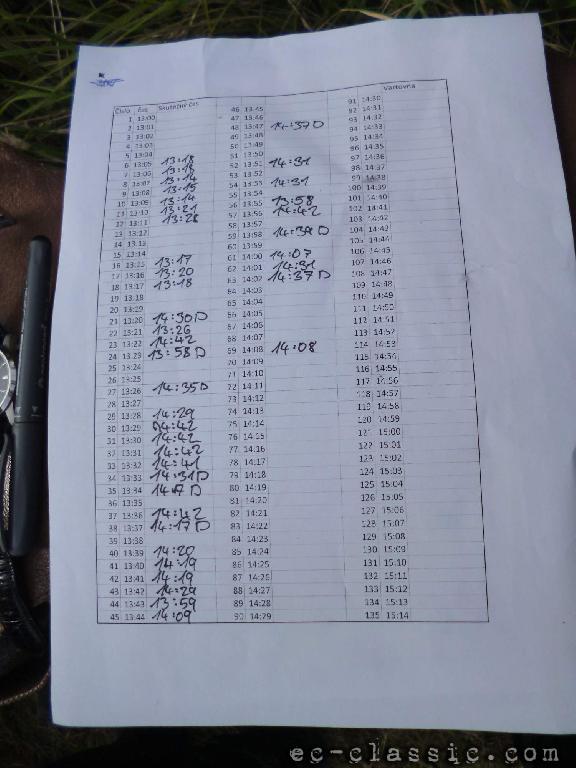 Číslo čas Skutečný čas
1 13:00
2 13:01
3 13:02
4 13:03
5 13:04
6 13:05 13:18
7 13:06
8 13:07 13:14
9 13:08 13:15
10 13:09 13:14
11 13:10 13:21
12 13:11 13:28
13 13:12
14 13:13
15 13:14
16 13:15 13:17
17 13:16 13:20
18 13:17 13:18
19 13:18
20 13:19
21 13:20 14:30D
22 13:21 13:26
23 13:22 14:42
24 13:23 13:58D
25 13:24
26 13:25
27 13:26 14:35D
28 13:27
29 13:28 14:29
30 13:29 14:42
31 13:30 14:42
32 13:31 14:42
33 13:32 14:41
34 13:33 14:31D
35 13:34 14:17 D
36 13:35
37 13:36 14:42
38 13:37 14:17 D
39 13:38
40 13:39 14:20
41 13:40 14:19
42 13:41 14:19
43 13:42 14:29
44 13:43 13:59
45 13:44 14:09
46 13:45
47 13:46
48 13:47 14:37D
49 13:48
50 13:49
51 13:50
52 13:51 14:31
53 13:52
54 13:53 14:31
55 13:54
56 13:55 13:58
57 13:56 14:42
58 13:57
59 13:58 14:39 D
60 13:59
61 14:00 14:07
62 14:01 14:31
63 14:02 14:37D
64 14:03
65 14:04
66 14:05
67 14:06
68 14:07
69 14:08 14:08
70 14:09
71 14:10
72 14:11
73 14:12
74 14:13
75 14:14
76 14:15
77 14:16
78 14:17
79 14:18
80 14:19
81 14:20
82 14:21
83 14:22
84 14:23
85 14:24
86 14:25
87 14:26
88 14:27
89 14:28
90 14:29
Vartovna
91 14:30
92 14:31
93 14:32
94 14:33
95 14:34
96 14:35
97 14:36
98 14:37
99 14:38
100 14:39
101 14:40
102 14:41
103 14:42
104 14:43
105 14:44
106 14:45
107 14:46
108 14:47
109 14:48
110 14:49
111 14:50
112 14:51
113 14:52
114 14:53
115 14:54
116 14:55
117 14:56
118 14:57
119 14:58
120 14:59
121 15:00
122 15:01
123 15:02
124 15:03
125 15:04
126 15:05
127 15:06
128 15:07
129 15:08
130 15:09
131 15:10
132 15:11
133 15:12
134 15:13
135 15:14
ec-classic.com